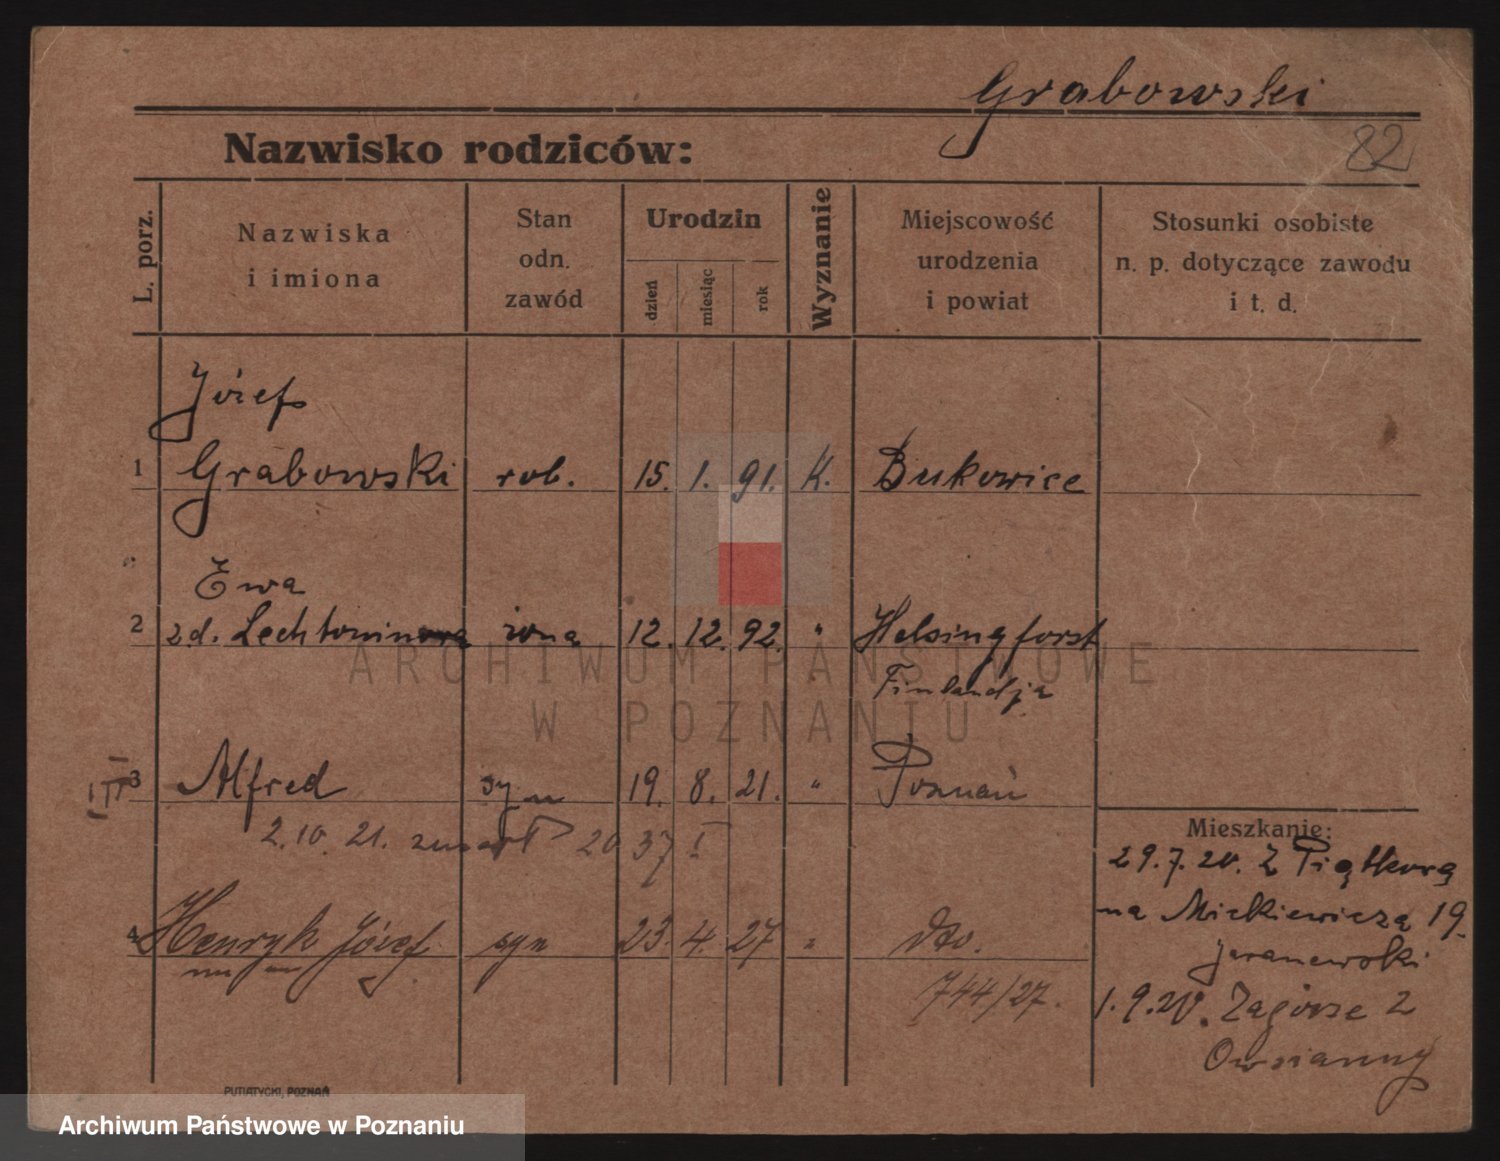 Grabowski
82
Nazwisko rodziców:
L. porz.
Nazwiska
i imiona
Stan
odn.
zawód
Urodzin
dzień
miesiąc
rok
Wyznanie
Miejscowość
urodzenia
i powiat
Stosunki osobiste
n. p. dotyczące zawodu
i t. d.
Józef
1 Grabowski rob. 15. 1. 91. K. Bukowice
Ewa
2 z d. Lechtonin żona 12. 12. 92. " Helsingforst
Finlandja
3 Alfred syn 19. 8. 21. " Poznań
2.10.21. zmarł 2037 I
4 Henryk Józef syn 23. 4. 27 " dto.
744/27.
Mieszkanie:
29.7.20. Z Piątkową
na Mickiewiczą 19.
1.9.20. Zagórze 2
Owsianny
PUTIATYCKI, POZNAŃ
ARCHIWUM PAŃSTWOWE
W POZNANIU
Archiwum Państwowe w Poznaniu